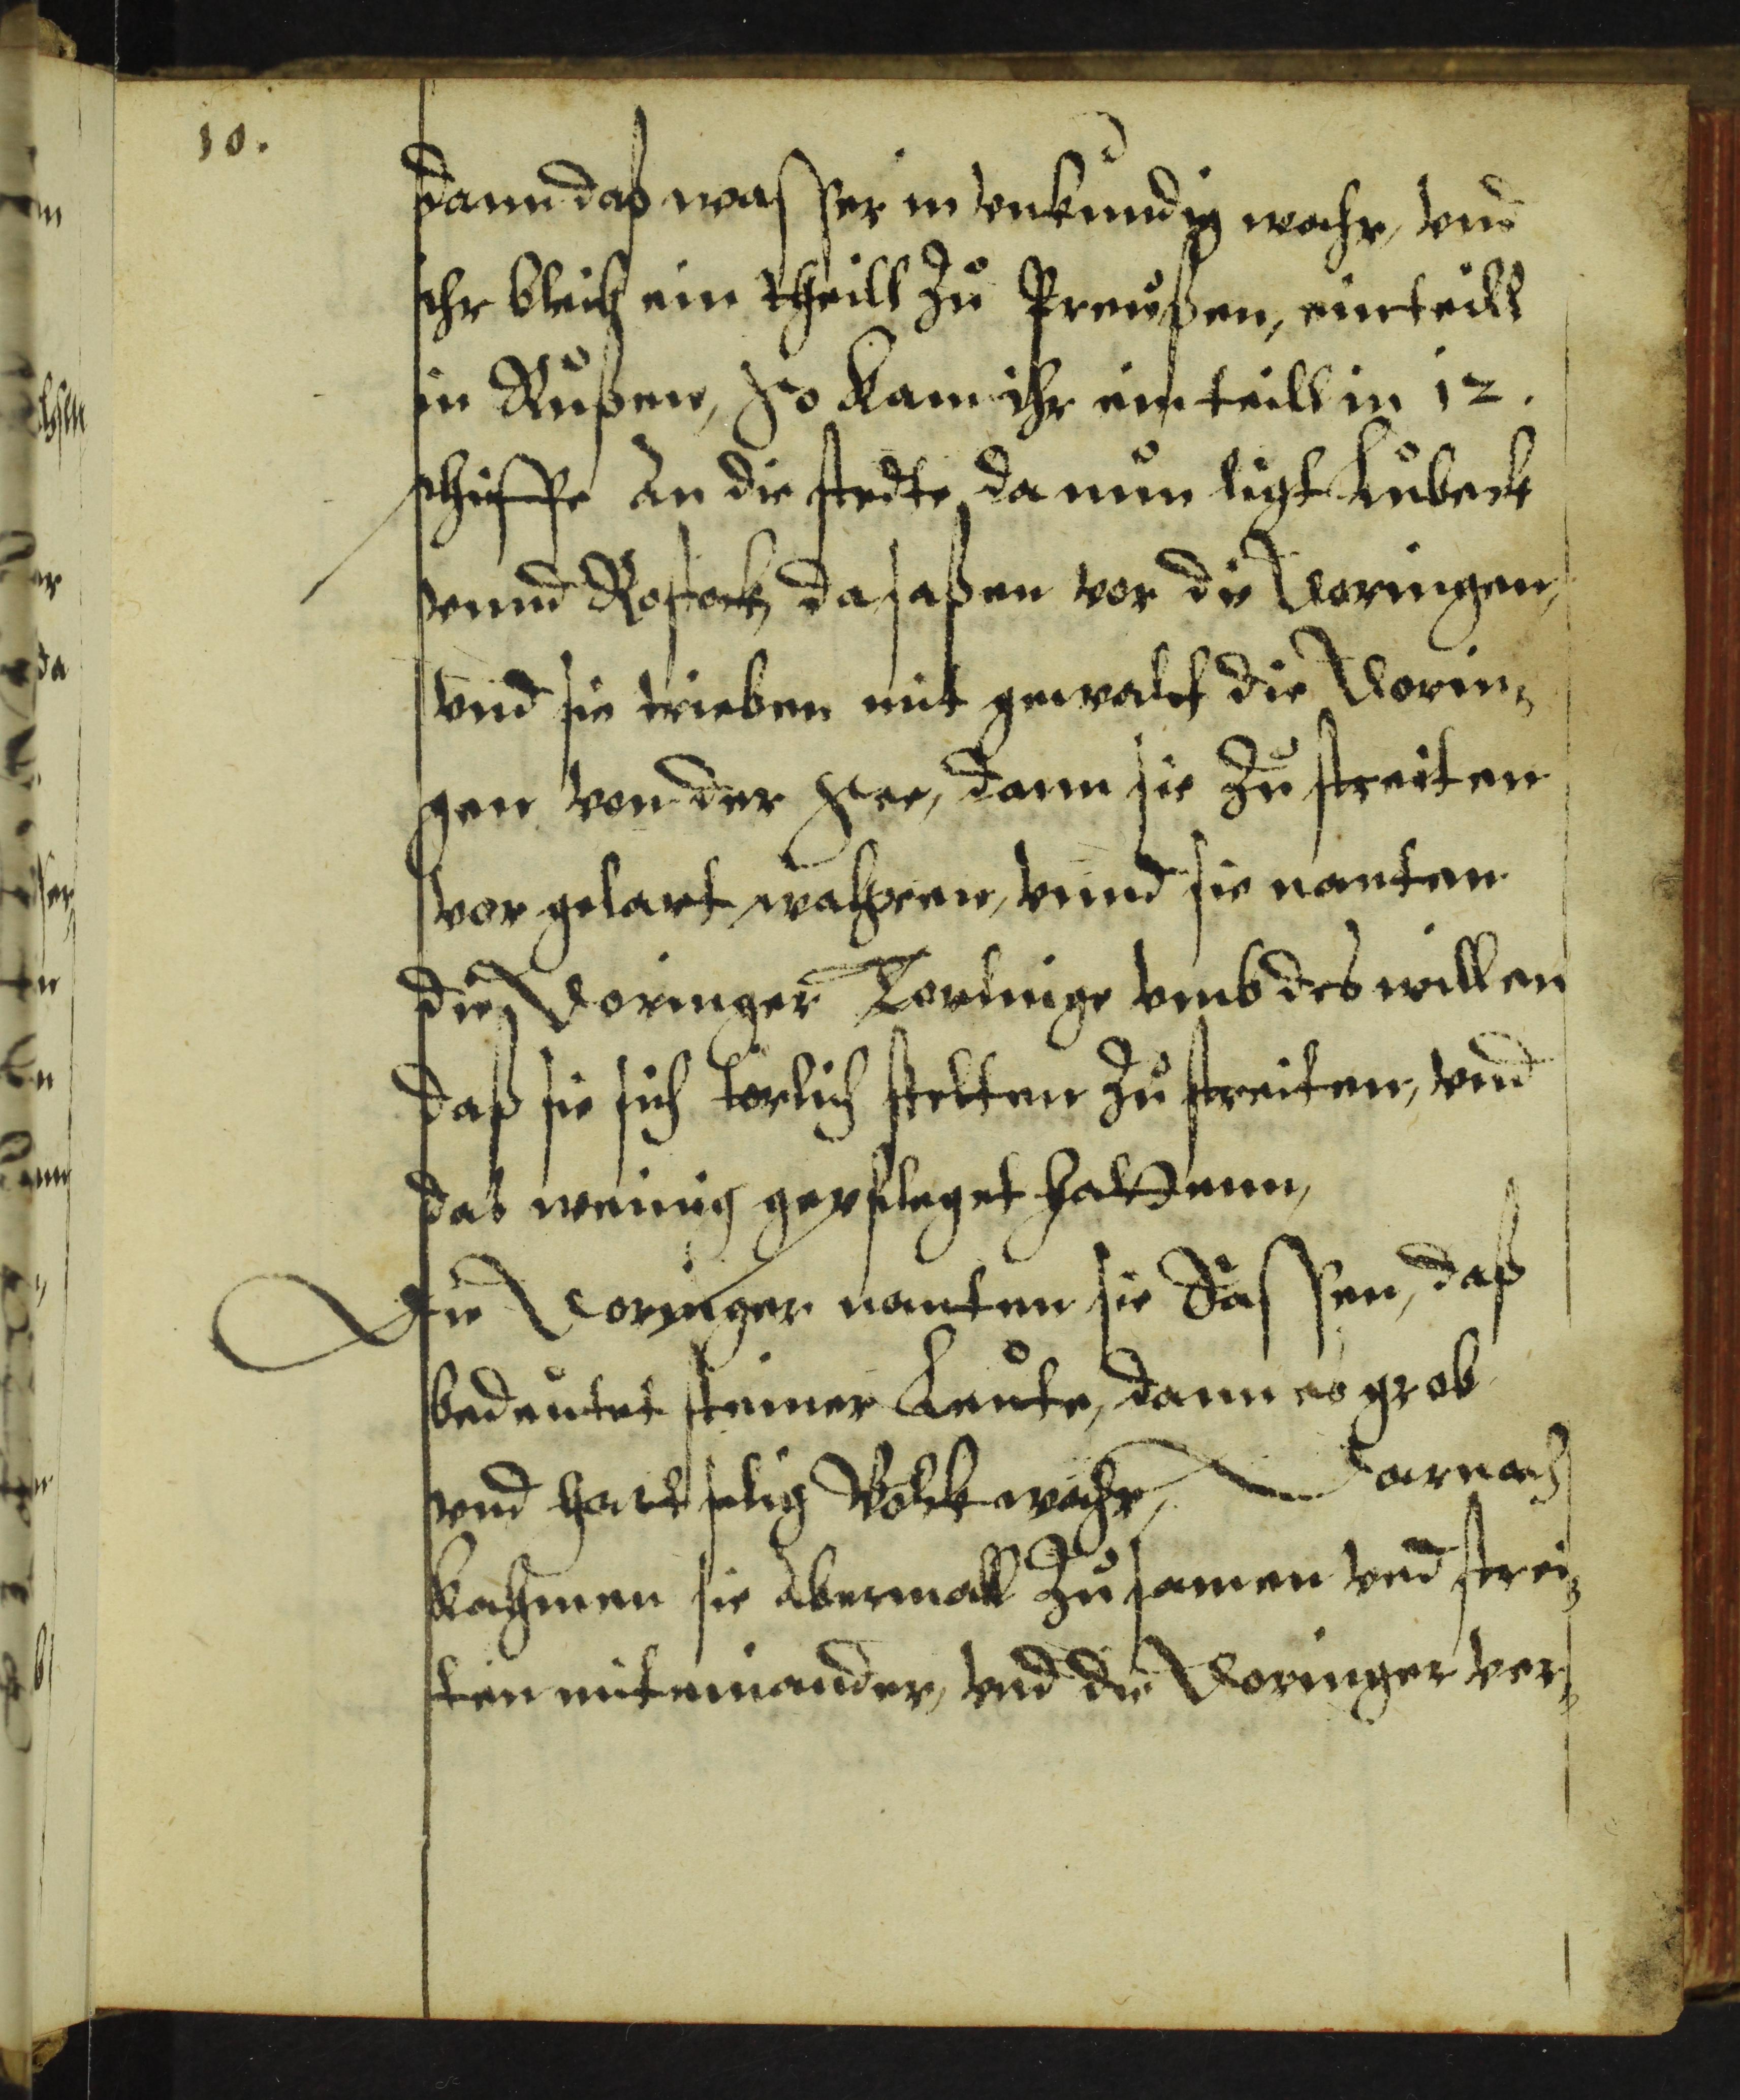 10.
dann daß wasser in vnkundig wahr, vnd
ihr bleib ein theill zu Preußen, ein teill
in Rußen, so kam ihr ein teill in 12.
schiffe an die stedte da nun ligt Lubeck
vnnd Rostock, da saßen vor die Doringen,
vnd sie trieben mit gewalt die Dorin-
gen von der see, dann sie zu streiten
vor gelart wahren, vnnd sie nanten
die Doringer Torlinge vmb des willen
daß sie sich törlich stelten zu streiten, vnd
das wenig gepfleget hattenn,
Die Doringer nanten sie Sassen, daß
bedeutet steiner Leute, dann es grob
vnd hartselig Volck wahr, Darnach
kahmen sie abermall zusamen vnd strei-
ten miteinander, vnd die Doringer ver-